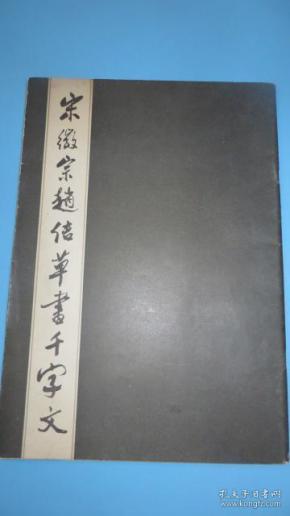 宋徽宗趙佶草書千字文
孔夫子旧书网